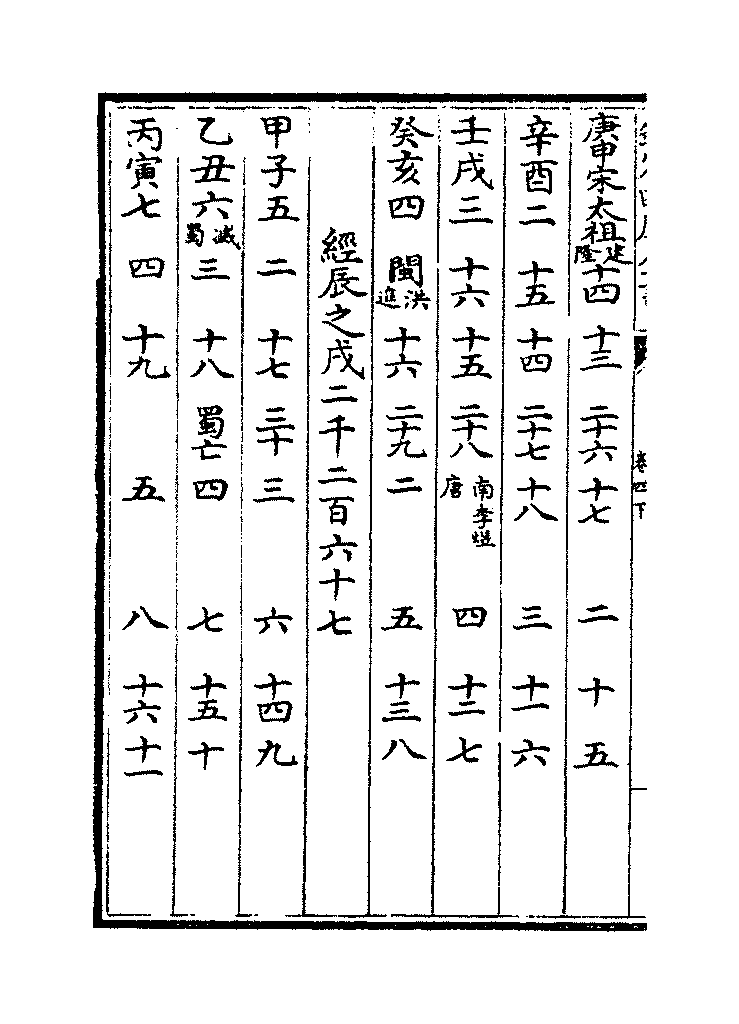 庚申宋太祖建隆十四 十三 二十六 十七 二 十 五
辛酉二 十五 十四 二十七 十八 三 十一 六
壬戌三 十六 十五 二十八 南唐李煜 四 十二 七
癸亥四 閩洪進 十六 二十九 二 五 十三 八
經辰之戌二千二百六十七
甲子五 二 十七 三十 三 六 十四 九
乙丑六滅蜀 三 十八 蜀亡 四 七 十五 十
丙寅七 四 十九 五 八 十六 十一
卷四下